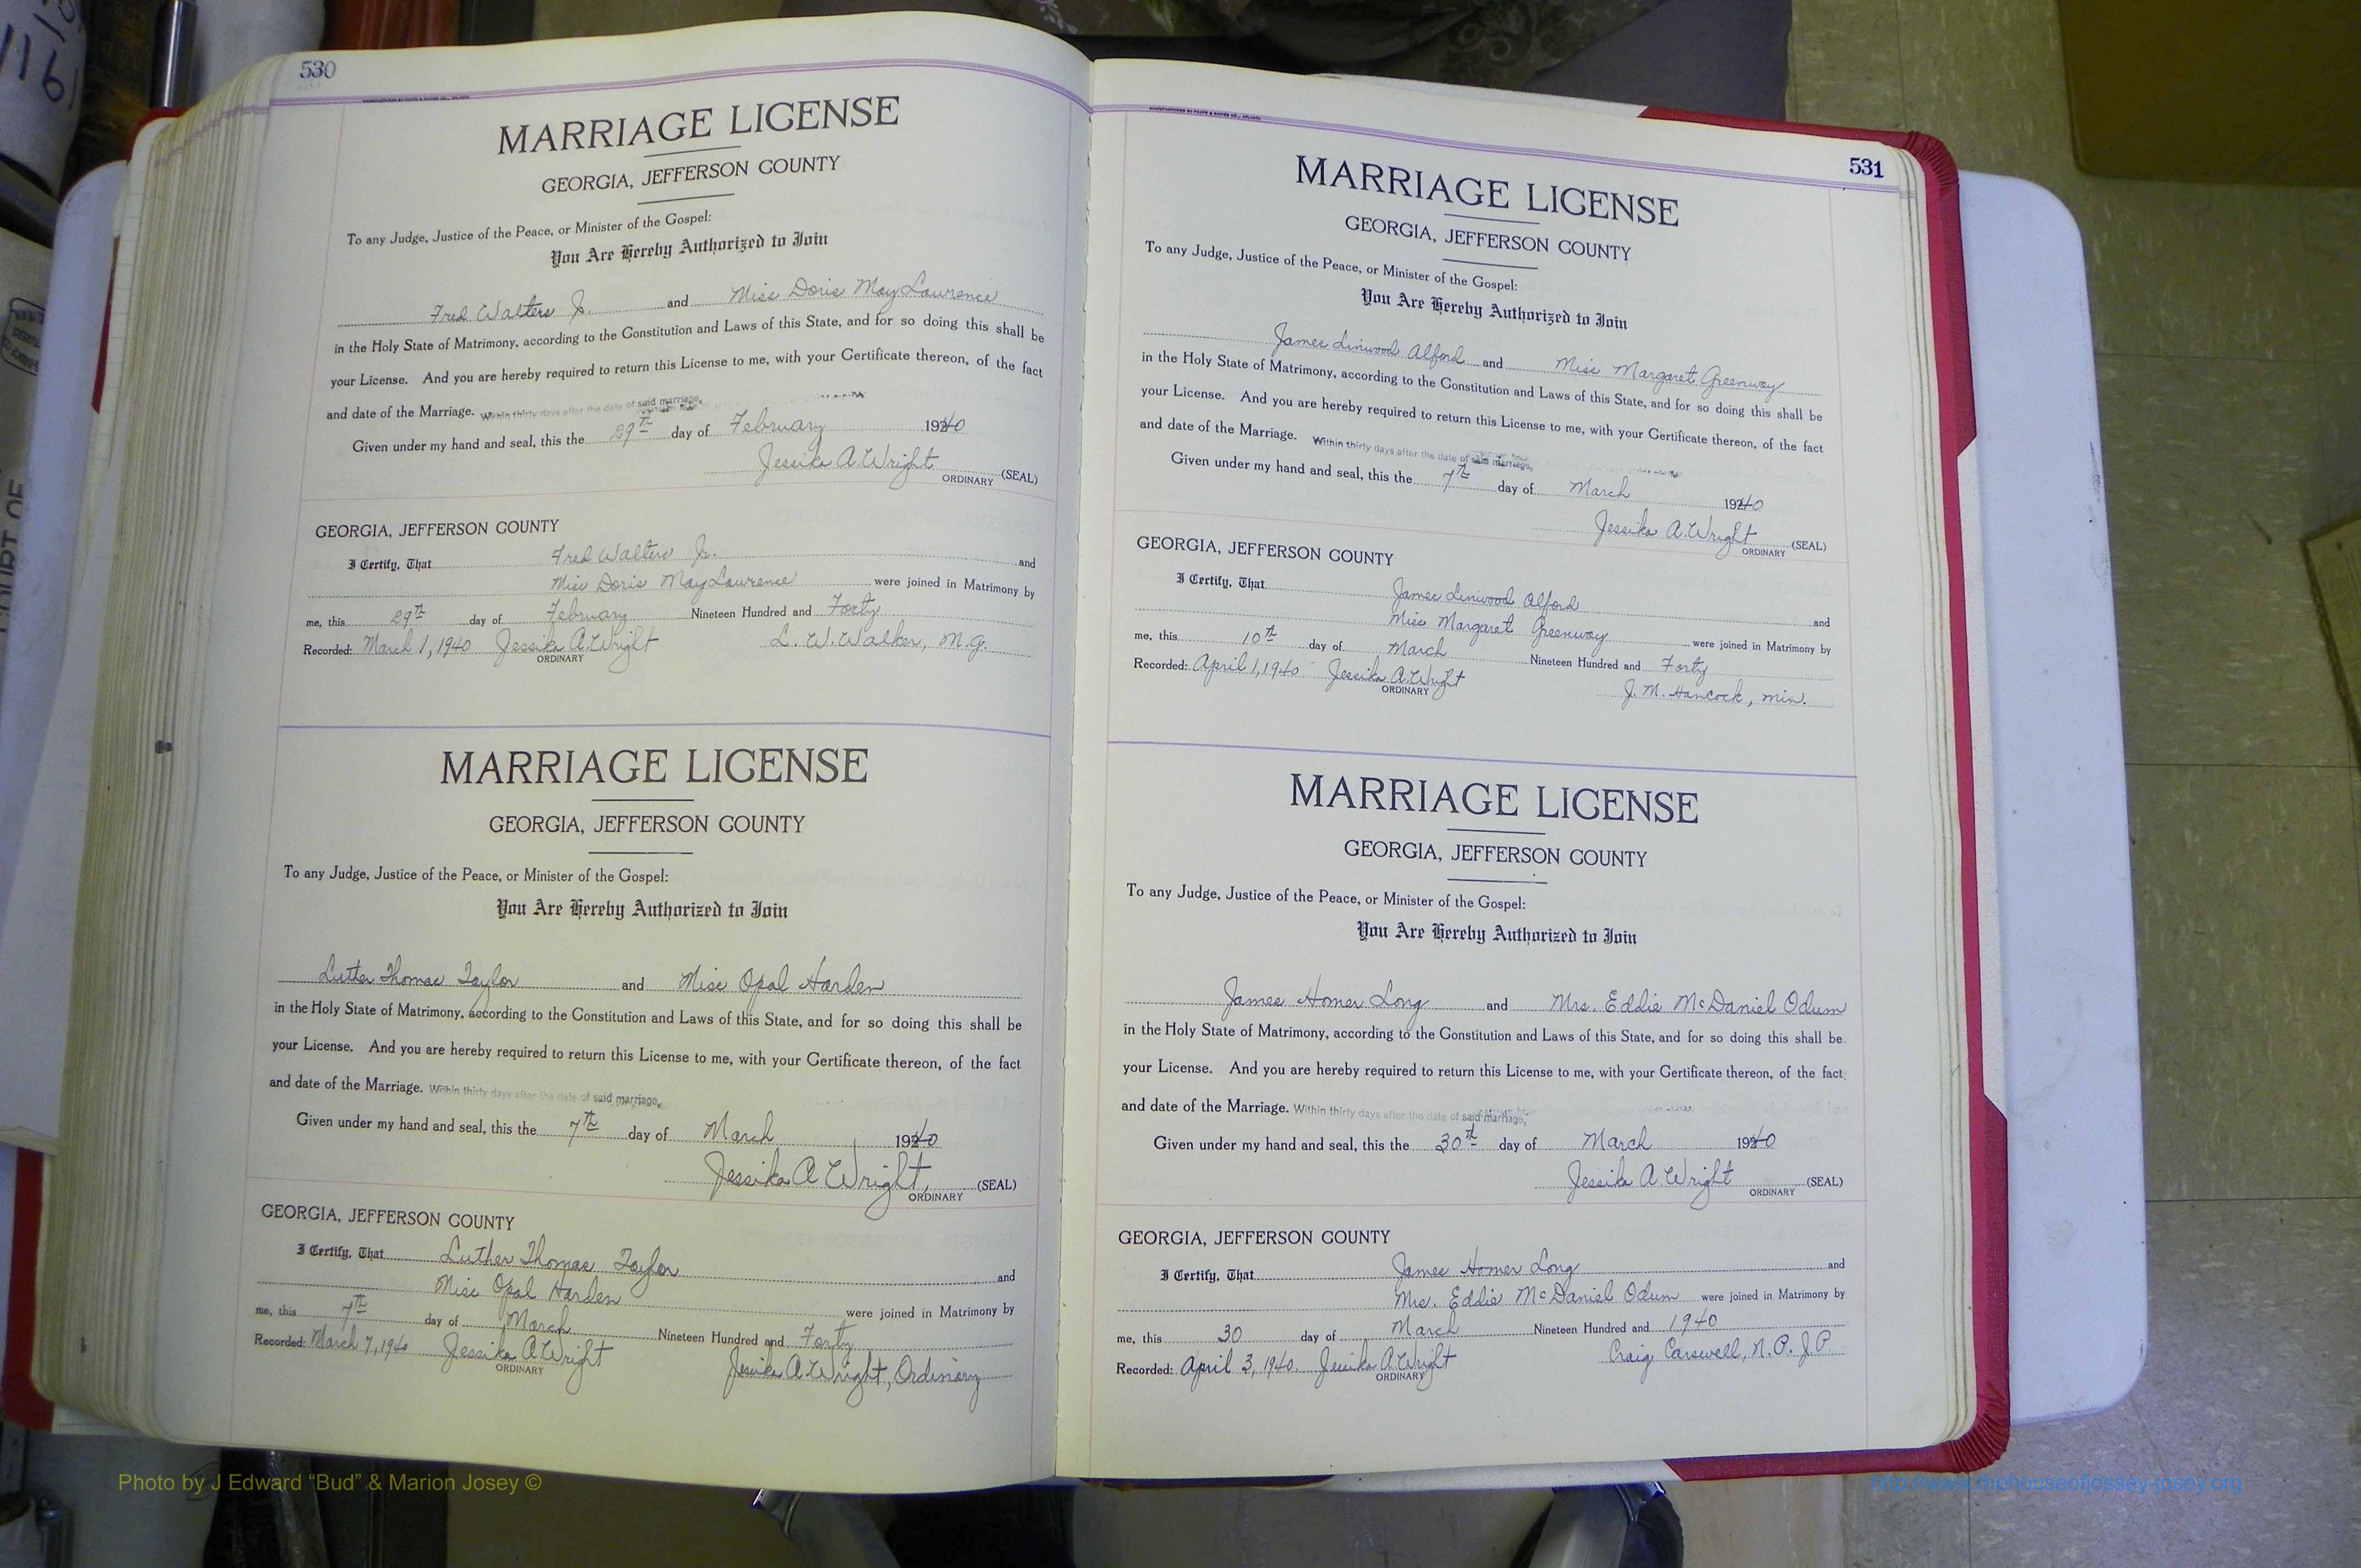 530
MARRIAGE LICENSE
GEORGIA, JEFFERSON COUNTY
To any Judge, Justice of the Peace, or Minister of the Gospel:
You Are Hereby Authorized to Join
Fred Walters Jr. and Miss Doris May Lawrence
in the Holy State of Matrimony, according to the Constitution and Laws of this State, and for so doing this shall be
your License. And you are hereby required to return this License to me, with your Certificate thereon, of the fact
and date of the Marriage. Within thirty days after the date of said marriage.
Given under my hand and seal, this the 29th day of February 1940
Jessika A. Wright (SEAL)
ORDINARY
GEORGIA, JEFFERSON COUNTY
I Certify, That Fred Walters Jr. and
Miss Doris May Lawrence were joined in Matrimony by
me, this 29th day of February Nineteen Hundred and Forty
Recorded: March 1, 1940 Jessika A. Wright L. W. Walker, M.G.
ORDINARY
MARRIAGE LICENSE
GEORGIA, JEFFERSON COUNTY
To any Judge, Justice of the Peace, or Minister of the Gospel:
You Are Hereby Authorized to Join
Luther Thomas Taylor and Miss Opal Harden
in the Holy State of Matrimony, according to the Constitution and Laws of this State, and for so doing this shall be
your License. And you are hereby required to return this License to me, with your Certificate thereon, of the fact
and date of the Marriage. Within thirty days after the date of said marriage,
Given under my hand and seal, this the 7th day of March 1940
Jessika A Wright, (SEAL)
ORDINARY
GEORGIA, JEFFERSON COUNTY
I Certify, That Luther Thomas Taylor and
Miss Opal Harden were joined in Matrimony by
me, this 7th day of March Nineteen Hundred and Forty
Recorded: March 7, 1940 Jessika A. Wright Jessika A. Wright, Ordinary
ORDINARY
531
MARRIAGE LICENSE
GEORGIA, JEFFERSON COUNTY
To any Judge, Justice of the Peace, or Minister of the Gospel:
You Are Hereby Authorized to Join
James Linwood Alford and Miss Margaret Greenway
in the Holy State of Matrimony, according to the Constitution and Laws of this State, and for so doing this shall be
your License. And you are hereby required to return this License to me, with your Certificate thereon, of the fact
and date of the Marriage. Within thirty days after the date of said marriage,
Given under my hand and seal, this the 7th day of March 1940
Jessika A. Wright (SEAL)
ORDINARY
GEORGIA, JEFFERSON COUNTY
I Certify, That James Linwood Alford and
Miss Margaret Greenway were joined in Matrimony by
me, this 10th day of March Nineteen Hundred and Forty
Recorded: April 1, 1940 Jessika A. Wright J. M. Hancock, min.
ORDINARY
MARRIAGE LICENSE
GEORGIA, JEFFERSON COUNTY
To any Judge, Justice of the Peace, or Minister of the Gospel:
You Are Hereby Authorized to Join
James Homer Long and Mrs. Eddie McDaniel Odum
in the Holy State of Matrimony, according to the Constitution and Laws of this State, and for so doing this shall be
your License. And you are hereby required to return this License to me, with your Certificate thereon, of the fact
and date of the Marriage. Within thirty days after the date of said marriage,
Given under my hand and seal, this the 30th day of March 1940
Jessika A. Wright (SEAL)
ORDINARY
GEORGIA, JEFFERSON COUNTY
I Certify, That James Homer Long and
Mrs. Eddie McDaniel Odum were joined in Matrimony by
me, this 30 day of March Nineteen Hundred and 1940
Recorded: April 3, 1940. Jessika A. Wright Craig Carswell, N.P. J.P.
ORDINARY
Photo by J Edward “Bud” & Marion Josey ©
http://www.thehouseofjossey-josey.org